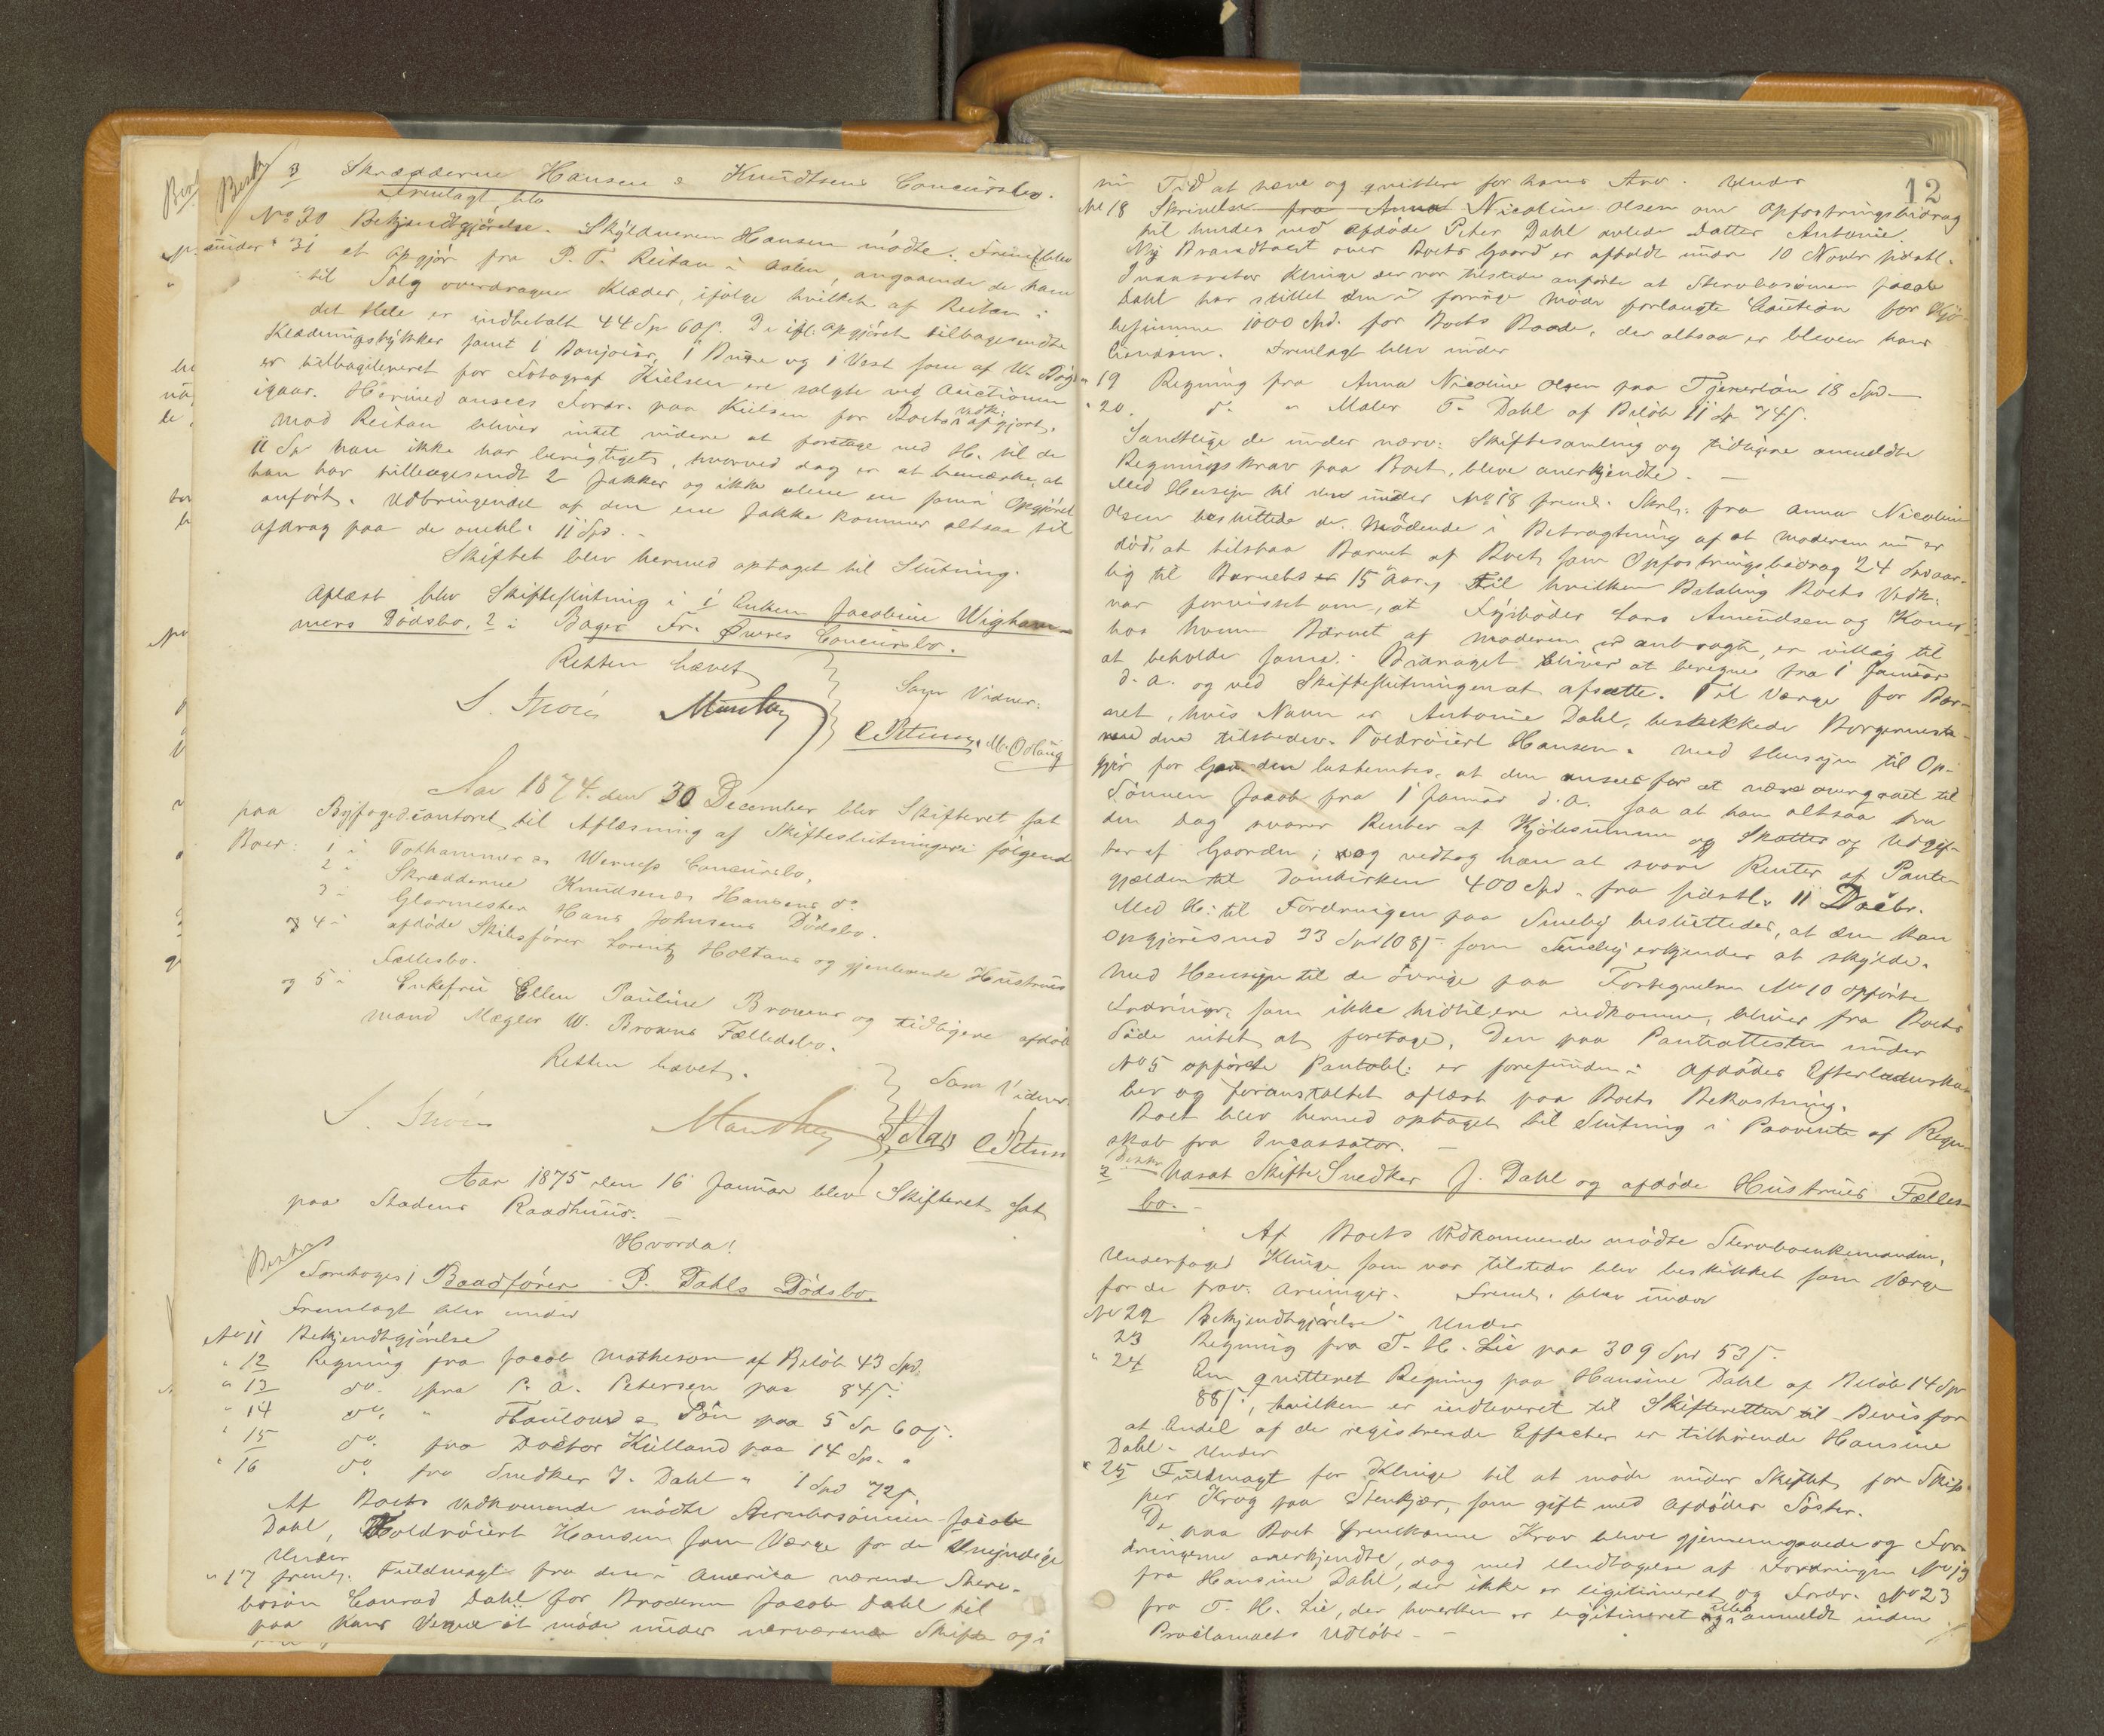 Besk 3 Skrædderne Hansen & Knudtsens Concursbo.
Fremlagt blev
No 30 Bekjendtgjørelse. Skyldneren Hansen mødte. Freml. blev
under " 31 et Opgjør fra P. T. Reitan i Aalen, angaaende de ham
til Salg overdragne Klæder, ifølge hvilket af Reitan i
det Hele er indbetalt 44 Sp 60 s. De ifl. Opgjøret tilbagesendte
Klædningsstykker samt 1 Bonjour, 1 Buxe og 1 Vest som af W.
er tilbageleveret for Fotograf Kielsen ere solgte ved Auctionen
igaar. Hermed ansees Fordr. paa Kielsen for Boets Vedk. afgjort.
Mod Reitan bliver intet videre at foretage med H. til de
11 Sp han ikke har berigtiget, hvorved dog er at bemærke, at
han har tilbagesendt 2 Jakker og ikke alene en som i Opgjøret
anført. Udbringendet af den ene Jakke kommer altsaa til
Afdrag paa de omhl. 11 Spd. -
Skiftet blev hermed optaget til Slutning.
Aflæst blev Skifteslutning i 1 Enken Jacobine Wigham-
mers Dødsbo, 2 i Bager Fr. Øwres Concursbo.
Retten hævet
Som Vidner:
Aar 1874 den 30 December blev Skifteret sat
paa Byfogedcontoret til Aflæsning af Skifteslutninger i følgende
Boer: 1 i Tothammer & Wernss Concursbo,
2 - Skrædderne Knudsen & Hansens do
3 - Glarmester Hans Johnsens Dødsbo.
4 - afdøde Skibsfører Lorentz Holtans og gjenlevende Hustrues
Fællesbo.
og 5 i Enkefru Ellen Pauline Browns og tidligere afdøde
Mand Mægler W. Browns Fællesbo.
Retten hævet.
Som Vidner.
Aar 1875 den 16 Januar blev Skifteret sat
paa Stadens Raadhuus. -
Hvorda!
Foretoges 1 Baadfører P. Dahls Dødsbo.
Fremlagt blev under
No 11 Bekjendtgjørelse
" 12 Regning fra Jacob Matheson af Beløb 43 Spd.
" 13 do. fra P. A. Petersen paa 84 s.
" 14 do. " & Søn paa 5 Sp 60 s.
" 15 do. fra Doctor Kielland paa 14 Sp. "
" 16 do. fra Snedker J. Dahl " 1 Spd 72 s.
Af Boets Vedkommende mødte Stervbosønnen Jacob
Dahl, Toldrøiert Hansen som Værge for de Umyndige
Under
" 17 freml. Fuldmagt fra den i Amerika værende Sterv-
bosøn Conrad Dahl for Broderen Jacob Dahl til
paa hans Vegne at møde under nærværende Skifte og i
12
sin Tid at hæve og qvittere for hans Arv. Under
No 18 Skrivelse fra Anna Nicoline Olsen om Opfostringsbidrag
til hendes med afdøde Peter Dahl avlede Datter Antonie
Ny Brandtaxt over Boets Gaard er afholdt under 10 Novbr sidstl.
Incassator Klinge der var tilstede anførte at Stervbosønnen Jacob
Dahl har stillet den i forrige Møde forlangte Caution for Kjø-
besummen 1000 Spd. for Boets Gaard, der altsaa er bleven hans
Eiendom. Fremlagt blev under
" 19 Regning fra Anna Nicoline Olsen paa Tjenerløn 18 Spd -
" 20. do. " Maler T. Dahl af Beløb 11 Sp 74 s.
Samtlige de under nærv. Skiftesamling og tidligere anmeldte
Regningskrav paa Boet, bleve anerkjendte. -
Med Hensyn til den under No 18 freml. Skrl. fra Anna Nicoline
Olsen besluttede de Mødende i Betragtning af at Moderen nu er
død, at tilstaa Barnet af Boet som Opfostringsbidrag 24 Spd aar-
lig til Barnets 15 Aar, til hvilken Betaling Boets Vedk.
var forvisset om, at Fyrbøder Lars Amundsen og Kone
hos hvem Barnet af Moderen er anbragt, er villig til
at beholde samme. Bidraget bliver at beregne fra 1 Januar
d. A. og ved Skifteslutningen at afsætte. Til Værge for Bar-
net, hvis Navn er Antonie Dahl, beskikkede Borgermeste-
ren den tilstedev. Toldrøiert Hansen. Med Hensyn til Op-
gjør for Gaarden bestemtes, at den ansees for at være overgaaet til
Sønnen Jacob fra 1 Januar d. A. saa at han altsaa fra
den Dag svarer Renter af Kjøbesummen og Skatter og Udgif-
ter af Gaarden; dog vedtog han at svare Renter af Pante-
gjælden til Domkirken 400 Spd. fra sidstl. 11 Decbr.
Med H. til Fordringen paa Smeby besluttedes, at den kan
opgjøres med 33 Spd 108 s. som Smeby erkjender at skylde.
Med Hensyn til de øvrige paa Fortegnelsen No 10 opførte
Fordringer, som ikke hidtil ere indkomne, bliver fra Boets
Side intet at foretage. Den paa Pantattesten under
No 5 opførte Pantobl. er forefunden i Afdødes Efterladenska-
ber og foranstaltet aflæst paa Boets Bekostning.
Boet blev hermed optaget til Slutning i Paavente af Regn-
skab fra Incassator. -
2 Skifte Snedker J. Dahl og afdøde Hustrues Fælles-
bo. -
Af Boets Vedkommende mødte Stervboenkemanden.
Underfoged Klinge som var tilstede blev beskikket som Værge
for de frav. Arvinger. Freml. blev under
No 22 Bekjendtgjørelse. Under
23 Regning fra T. H. Lie paa 309 Spd 53 s.
" 24 En qvitteret Regning paa Hansine Dahl af Beløb 14 Sp
88 s., hvilken er indleveret til Skifteretten til Bevis for
at Endel af de registrerede Effecter er tilhørende Hansine
Dahl. Under
" 25 Fuldmagt for Klinge til at møde under Skiftet for Skip-
per Krog paa Stenkjær, som gift med Afdødes Søster.
De paa Boet fremkomne Krav bleve gjennemgaaede og For-
dringerne anerkjendte, dog med Undtagelse af Fordringen No 13
fra Hansine Dahl, der ikke er legitimeret og Fordr. No 23
fra T. H. Lie, der hverken er legitimeret eller anmeldt inden
Proclamaets Udløb. -